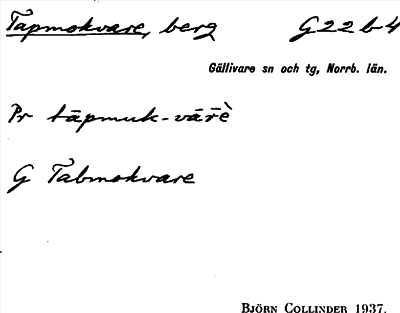 Tapmokvare, berg G22b4
Gällivare sn och tg, Norrb. län.
Pr tāpmuk-vār̄è
G Tabmokvare
BJÖRN COLLINDER 1937.